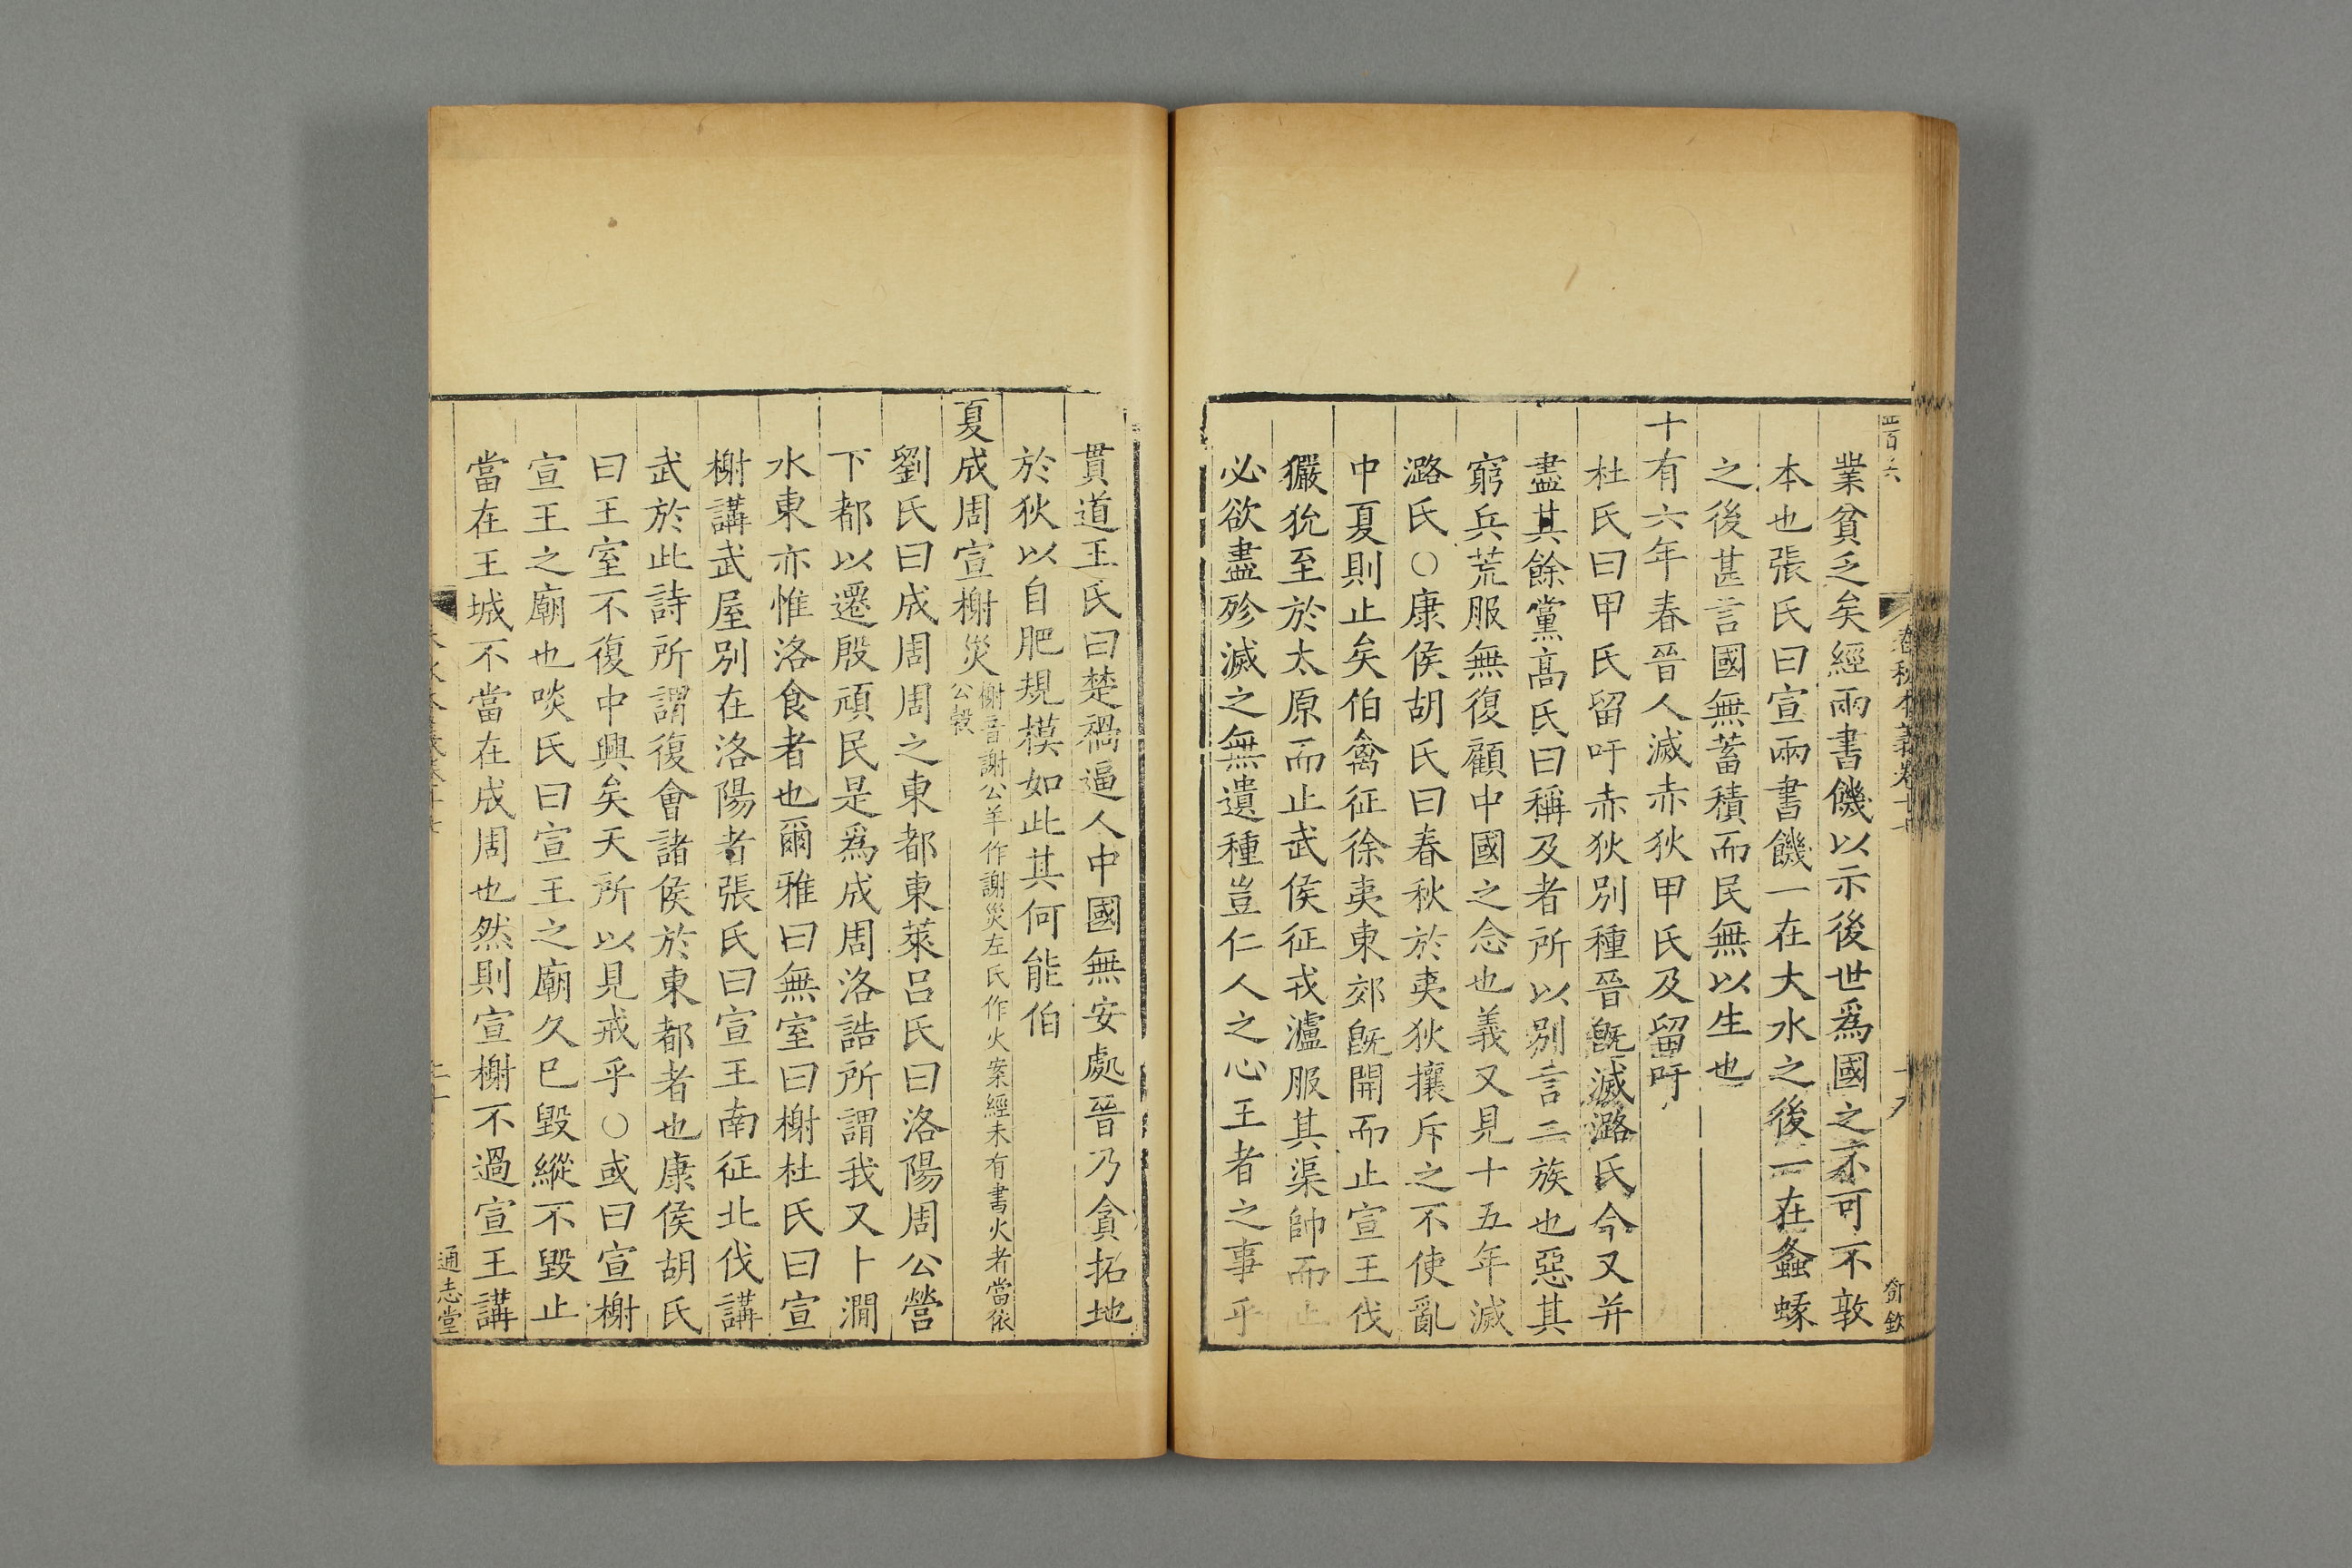 業貧乏矣經兩書饑以示後世爲國之不可不敦
本也張氏曰宣兩書饑一在大水之後一在螽蝝
之後甚言國無蓄積而民無以生也
十有六年春晉人滅赤狄甲氏及留吁
杜氏曰甲氏留吁赤狄別種晉旣滅潞氏今又并
盡其餘黨高氏曰稱及者所以別言二族也惡其
窮兵荒服無復顧中國之念也義又見十五年滅
潞氏○康侯胡氏曰春秋於夷狄攘斥之不使亂
中夏則止矣伯禽征徐夷東郊旣開而止宣王伐
玁狁至於太原而止武侯征戎瀘服其渠帥而止
必欲盡殄滅之無遺種豈仁人之心王者之事乎
貫道王氏曰楚禍逼人中國無安處晉乃貪拓地
於狄以自肥規模如此其何能伯
夏成周宣榭災榭音謝公羊作謝災左氏作火案經未有書火者當依
公穀
劉氏曰成周周之東都東萊呂氏曰洛陽周公營
下都以遷殷頑民是爲成周洛誥所謂我又卜澗
水東亦惟洛食者也爾雅曰無室曰榭杜氏曰宣
榭講武屋別在洛陽者張氏曰宣王南征北伐講
武於此詩所謂復會諸侯於東都者也康侯胡氏
曰王室不復中興矣天所以見戒乎○或曰宣榭
宣王之廟也啖氏曰宣王之廟久已毀縱不毀止
當在王城不當在成周也然則宣榭不過宣王講
通志堂